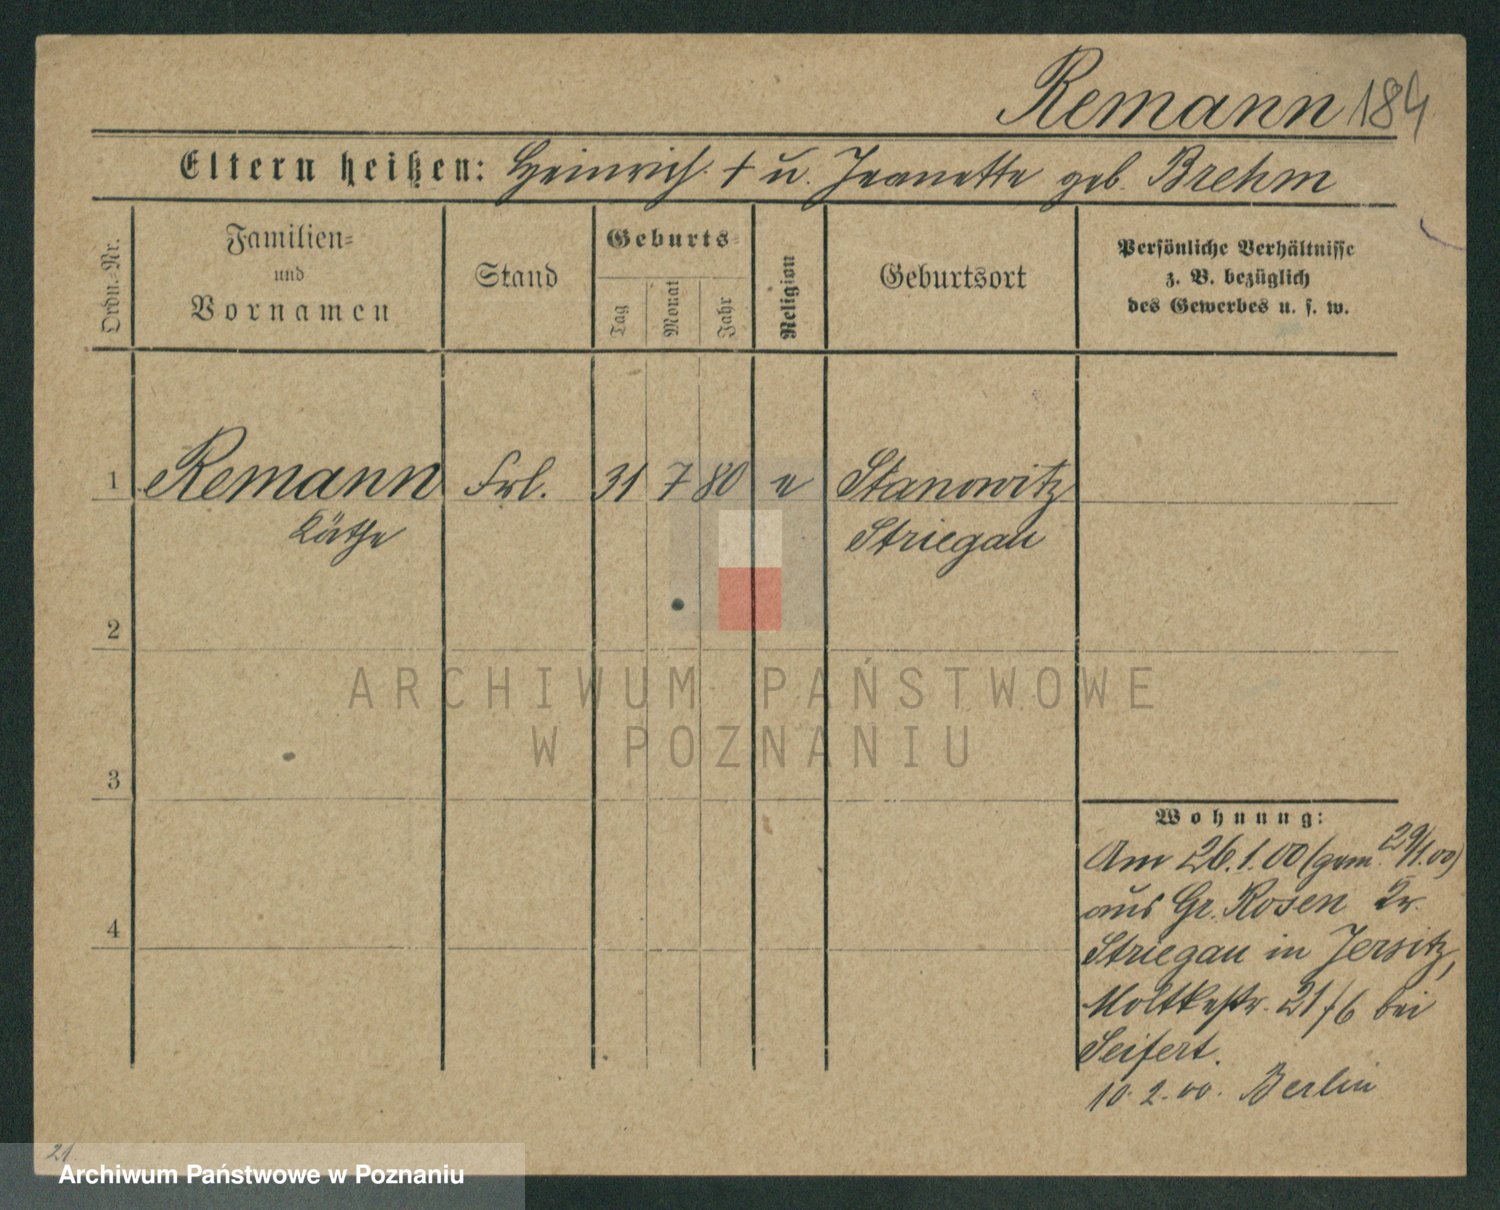 Remann 184
Eltern heißen: Heinrich † u. Jeanette geb. Brehm
Ordn.-Nr.
Familien-
und
Vornamen
Stand
Geburts-
Tag
Monat
Jahr
Religion
Geburtsort
Persönliche Verhältnisse
z. B. bezüglich
des Gewerbes u. s. w.
1 Remann Frl. 31 7 80 e Stanowitz
Käthe Striegau
2
ARCHIWUM PAŃSTWOWE
W POZNANIU
3
Wohnung:
Am 26.1.00 (gem. 29/1.00)
aus Gr. Rosen Kr.
4
Striegau in Jersitz,
Moltkestr. 21/6 bei
Seifert.
10.2.00. Berlin
21.
Archiwum Państwowe w Poznaniu